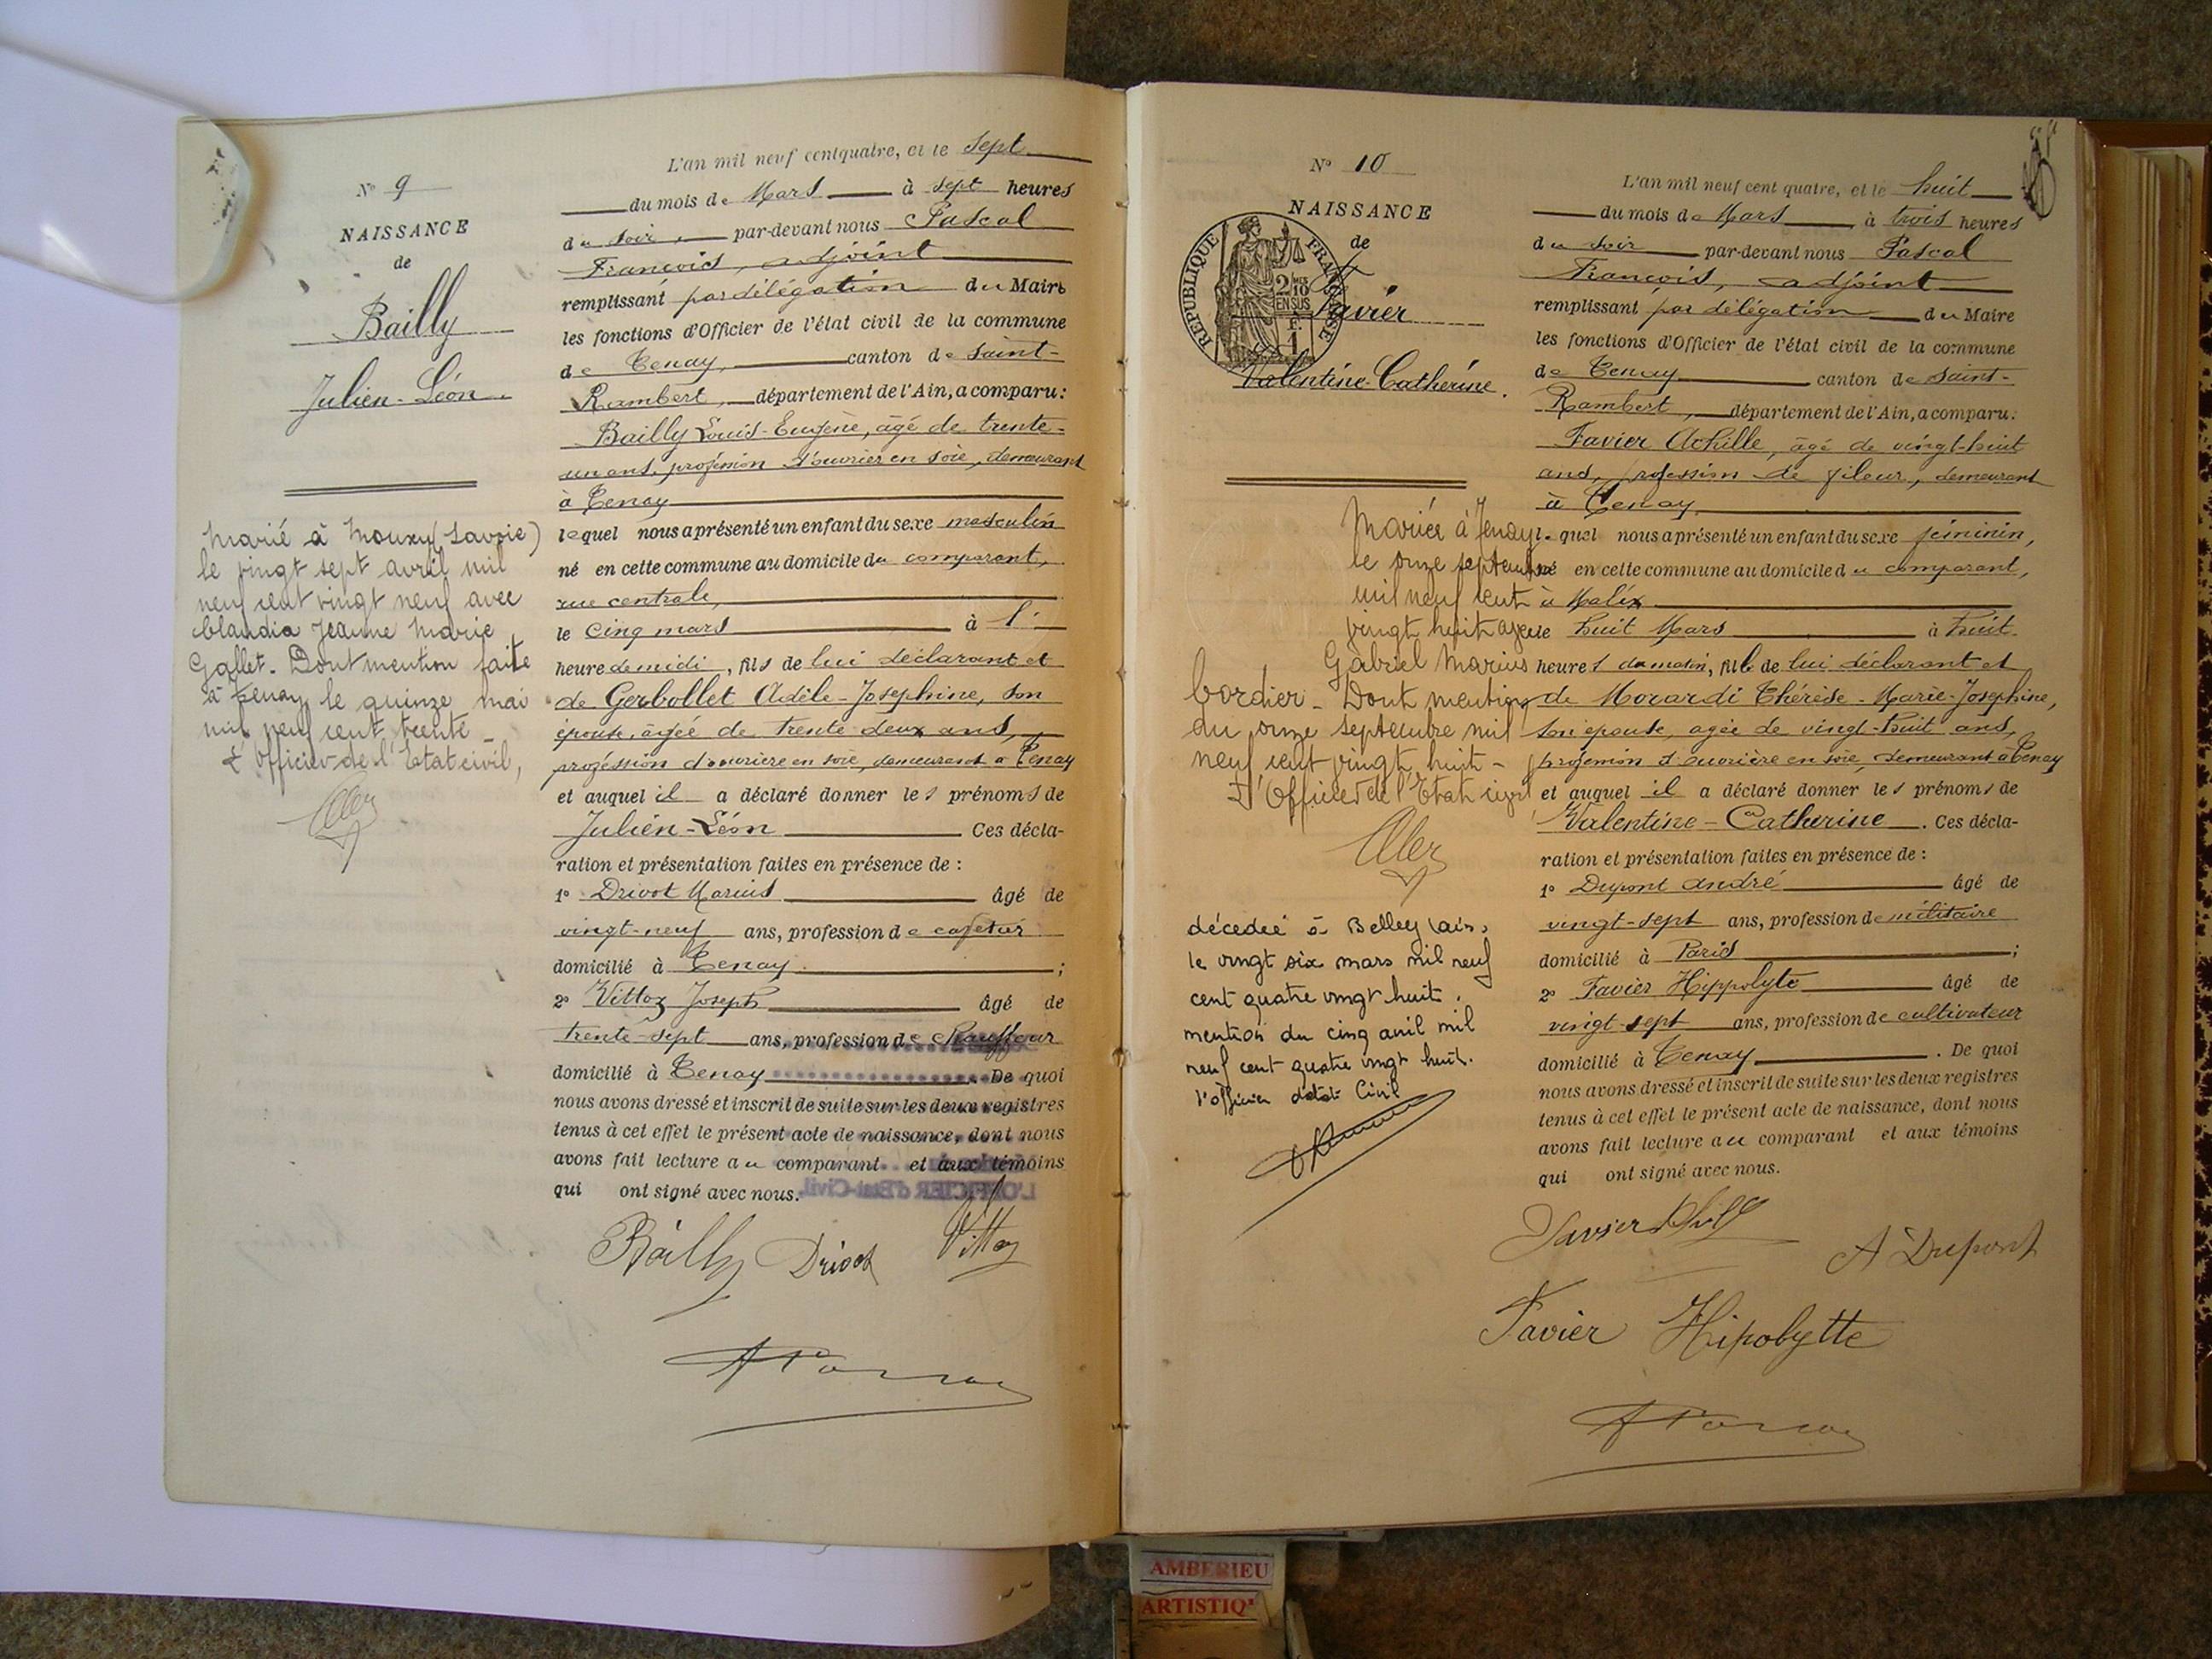 Nº 9
NAISSANCE
de
Bailly
Julien-Léon.
Marié à Mouxy (Savoie)
le vingt sept avril mil
neuf cent vingt neuf avec
Claudia Jeanne Marie
Gallet. Dont mention faite
à Tenay le quinze mai
mil neuf cent trente _
L'Officier de l'Etat civil,
L'an mil neuf cent quatre, et le sept
du mois de Mars à sept heures
du soir, par-devant nous Pascal
François, adjoint
remplissant par délégation du Maire
les fonctions d'Officier de l'état civil de la commune
de Tenay, canton de Saint-
Rambert, département de l'Ain, a comparu:
Bailly Louis-Eugène, âgé de trente-
un ans, profession d'ouvrier en soie, demeurant
à Tenay
lequel nous a présenté un enfant du sexe masculin
né en cette commune au domicile du comparant,
rue centrale,
le cinq mars à l'
heure de midi, fils de lui déclarant et
de Gerbollet Adèle-Josephine, son
épouse, âgée de trente deux ans,
profession d'ouvrière en soie, demeurant à Tenay
et auquel il a déclaré donner les prénoms de
Julien-Léon Ces décla-
ration et présentation faites en présence de :
1º Drivot Marius âgé de
vingt-neuf ans, profession de cafetier
domicilié à Tenay ;
2º Vittoz Joseph âgé de
trente-sept ans, profession de chauffeur
domicilié à Tenay . De quoi
nous avons dressé et inscrit de suite sur les deux registres
tenus à cet effet le présent acte de naissance, dont nous
avons fait lecture au comparant et aux témoins
qui ont signé avec nous.
L'OFFICIER d'Etat-Civil
Bailly Drivot Vittoz
Nº 10
NAISSANCE
de
REPUBLIQUE FRANÇAISE
2/10
EN SUS
1 F.
Favier
Valentine-Catherine.
Mariée à Tenay
le onze septembre
mil neuf cent
vingt huit avec
Gabriel Marius
Cordier _ Dont mention
du onze septembre mil
neuf cent vingt huit _
L'Officier de l'Etat civil
décédée à Belley (Ain)
le vingt six mars mil neuf
cent quatre vingt huit.
mention du cinq avril mil
neuf cent quatre vingt huit.
l'officier d'état Civil
L'an mil neuf cent quatre, et le huit
du mois de Mars à trois heures
du soir par-devant nous Pascal
François, adjoint
remplissant par délégation du Maire
les fonctions d'Officier de l'état civil de la commune
de Tenay canton de Saint-
Rambert, département de l'Ain, a comparu:
Favier Achille, âgé de vingt-huit
ans, profession de fileur, demeurant
à Tenay.
lequel nous a présenté un enfant du sexe féminin,
né en cette commune au domicile du comparant,
à Malix
le huit Mars à huit
heures du matin, fille de lui déclarant et
de Morardi Thérèse-Marie-Josephine,
son épouse, agée de vingt-huit ans,
profession d'ouvrière en soie, demeurant à Tenay
et auquel il a déclaré donner les prénoms de
Valentine-Catherine . Ces décla-
ration et présentation faites en présence de :
1º Dupont André âgé de
vingt-sept ans, profession de militaire
domicilié à Paris ;
2º Favier Hippolyte âgé de
vingt-sept ans, profession de cultivateur
domicilié à Tenay . De quoi
nous avons dressé et inscrit de suite sur les deux registres
tenus à cet effet le présent acte de naissance, dont nous
avons fait lecture au comparant et aux témoins
qui ont signé avec nous.
A Dupont
Favier Hipolytte
AMBERIEU
ARTISTIQ